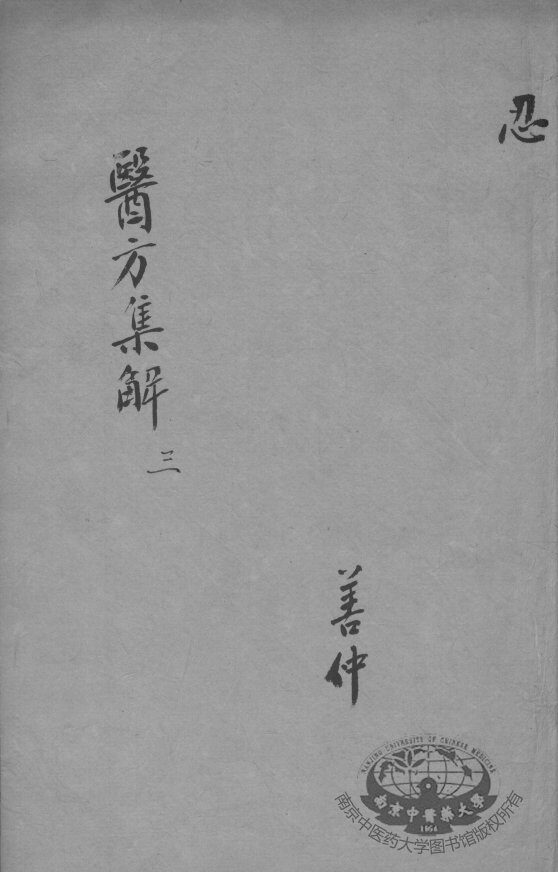 忍
善仲
醫方集解
三
NANJING UNIVERSITY OF CHINESE MEDICINE
南京中醫藥大學
1954
南京中医药大学图书馆版权所有